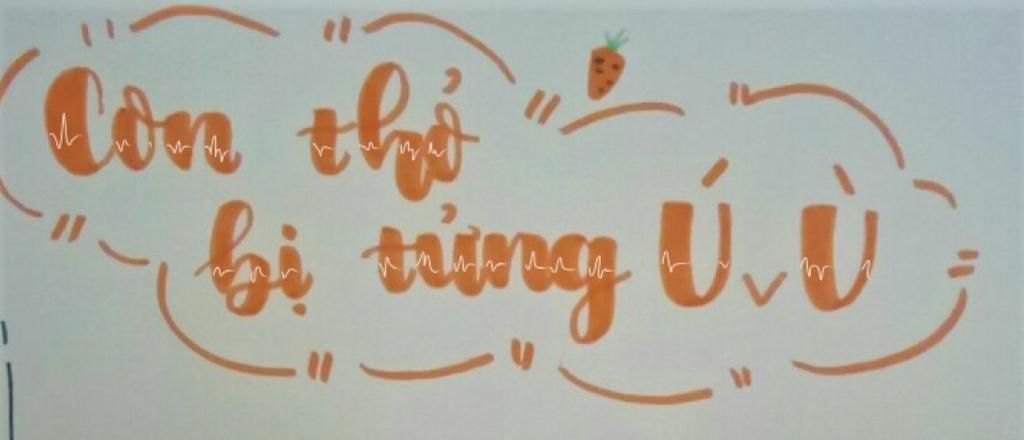 Con thỏ
bị tửng ÚvÙ